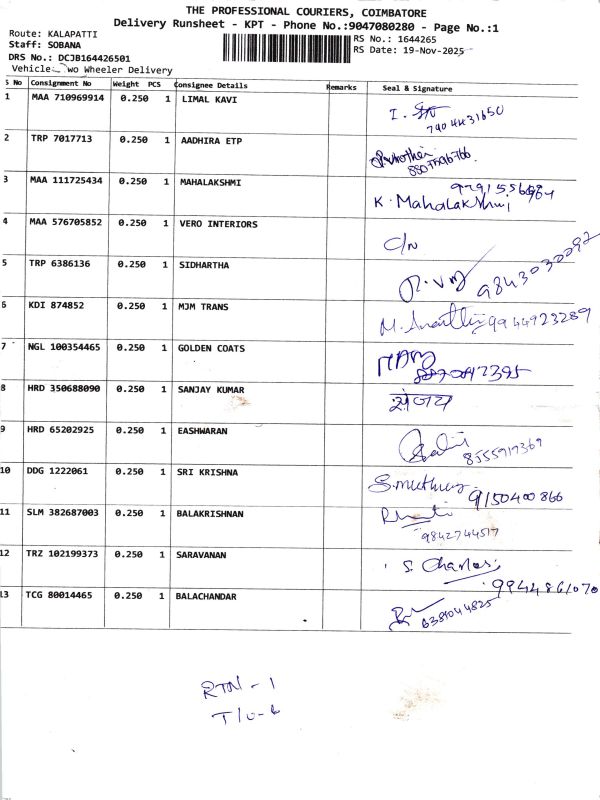 THE PROFESSIONAL COURIERS, COIMBATORE
Delivery Runsheet - KPT - Phone No.:9047080280 - Page No.:1
Route: KALAPATTI
Staff: SOBANA
DRS No.: DCJB164426501
Vehicle wo Wheeler Delivery
RS No.: 1644265
RS Date: 19-Nov-2025
S No Consignment No Weight PCS Consignee Details Remarks Seal & Signature
1 MAA 710969914 0.250 1 LIMAL KAVI
2 TRP 7017713 0.250 1 AADHIRA ETP
3 MAA 111725434 0.250 1 MAHALAKSHMI K. Mahalakshmi
4 MAA 576705852 0.250 1 VERO INTERIORS C/N
5 TRP 6386136 0.250 1 SIDHARTHA 9843030092
6 KDI 874852 0.250 1 MJM TRANS 9944923289
7 NGL 100354465 0.250 1 GOLDEN COATS
8 HRD 350688090 0.250 1 SANJAY KUMAR संजय
9 HRD 65202925 0.250 1 EASHWARAN 8555917369
10 DDG 1222061 0.250 1 SRI KRISHNA 9150400866
11 SLM 382687003 0.250 1 BALAKRISHNAN 9842744517
12 TRZ 102199373 0.250 1 SARAVANAN 9944861070
13 TCG 80014465 0.250 1 BALACHANDAR 6381044825
RTN - 1